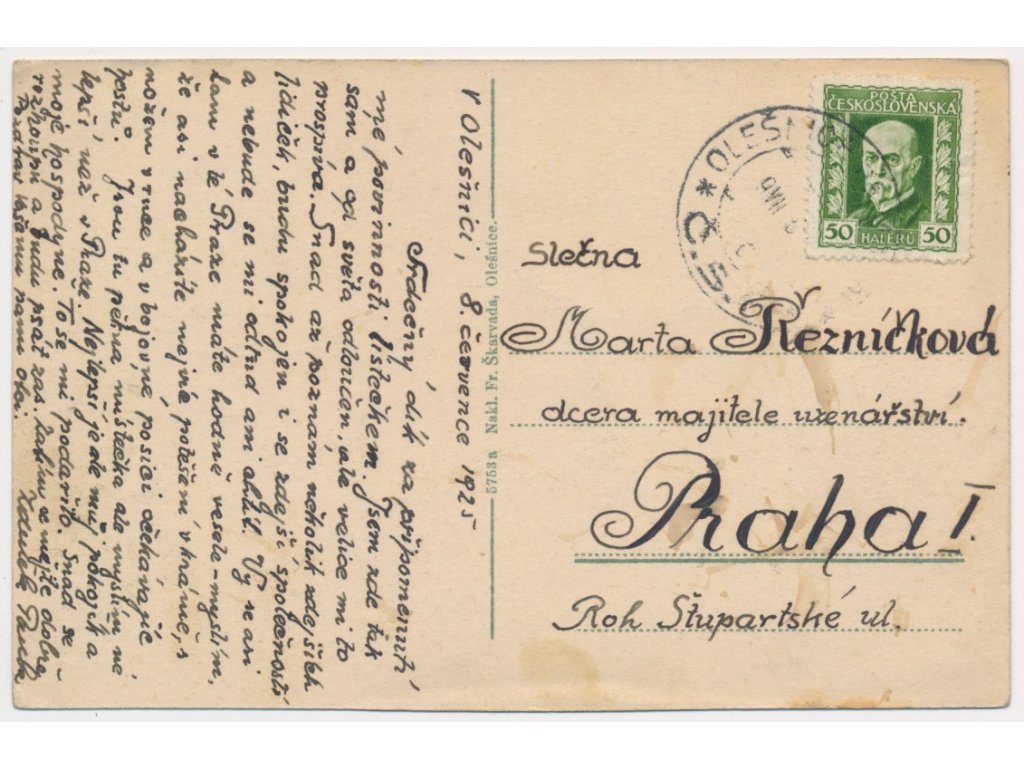 V Olešnici, 8. července 1925
Srdečný dík za připomenutí
mé povinnosti lístečkem. Jsem zde tak
sám a od světa odloučen, ale velice mi to
prospívá. Snad až poznám několik zdejších
lidiček, budu spokojen i se zdejší společností
a nebude se mi odtud ani chtít. Vy se asi
tam v té Praze máte hodně vesele - myslím,
že asi nacházíte nejvíc potěšení v krámě, s
nožem v ruce a v bojovné posici očekávajíc
hostů. Jsou tu pěkná městečka ale myslím né
lepší než v Praze. Nejlepší je de můj pokojík a
moje hospodyně. To se mi podařilo. Snad se
rozhoupu a budu psát zas. Zatím se mějte dobře
Pozdrav k Vašemu panu otci.
Zdeněk
5753a Nakl. Fr. Skarvada, Olešnice.
POŠTA
ČESKOSLOVENSKÁ
50 HALÉŘŮ 50
OLEŠNICE
Slečna
Marta Řezníčková
dcera majitele uzenářství.
Praha I.
Roh Štupartské ul.